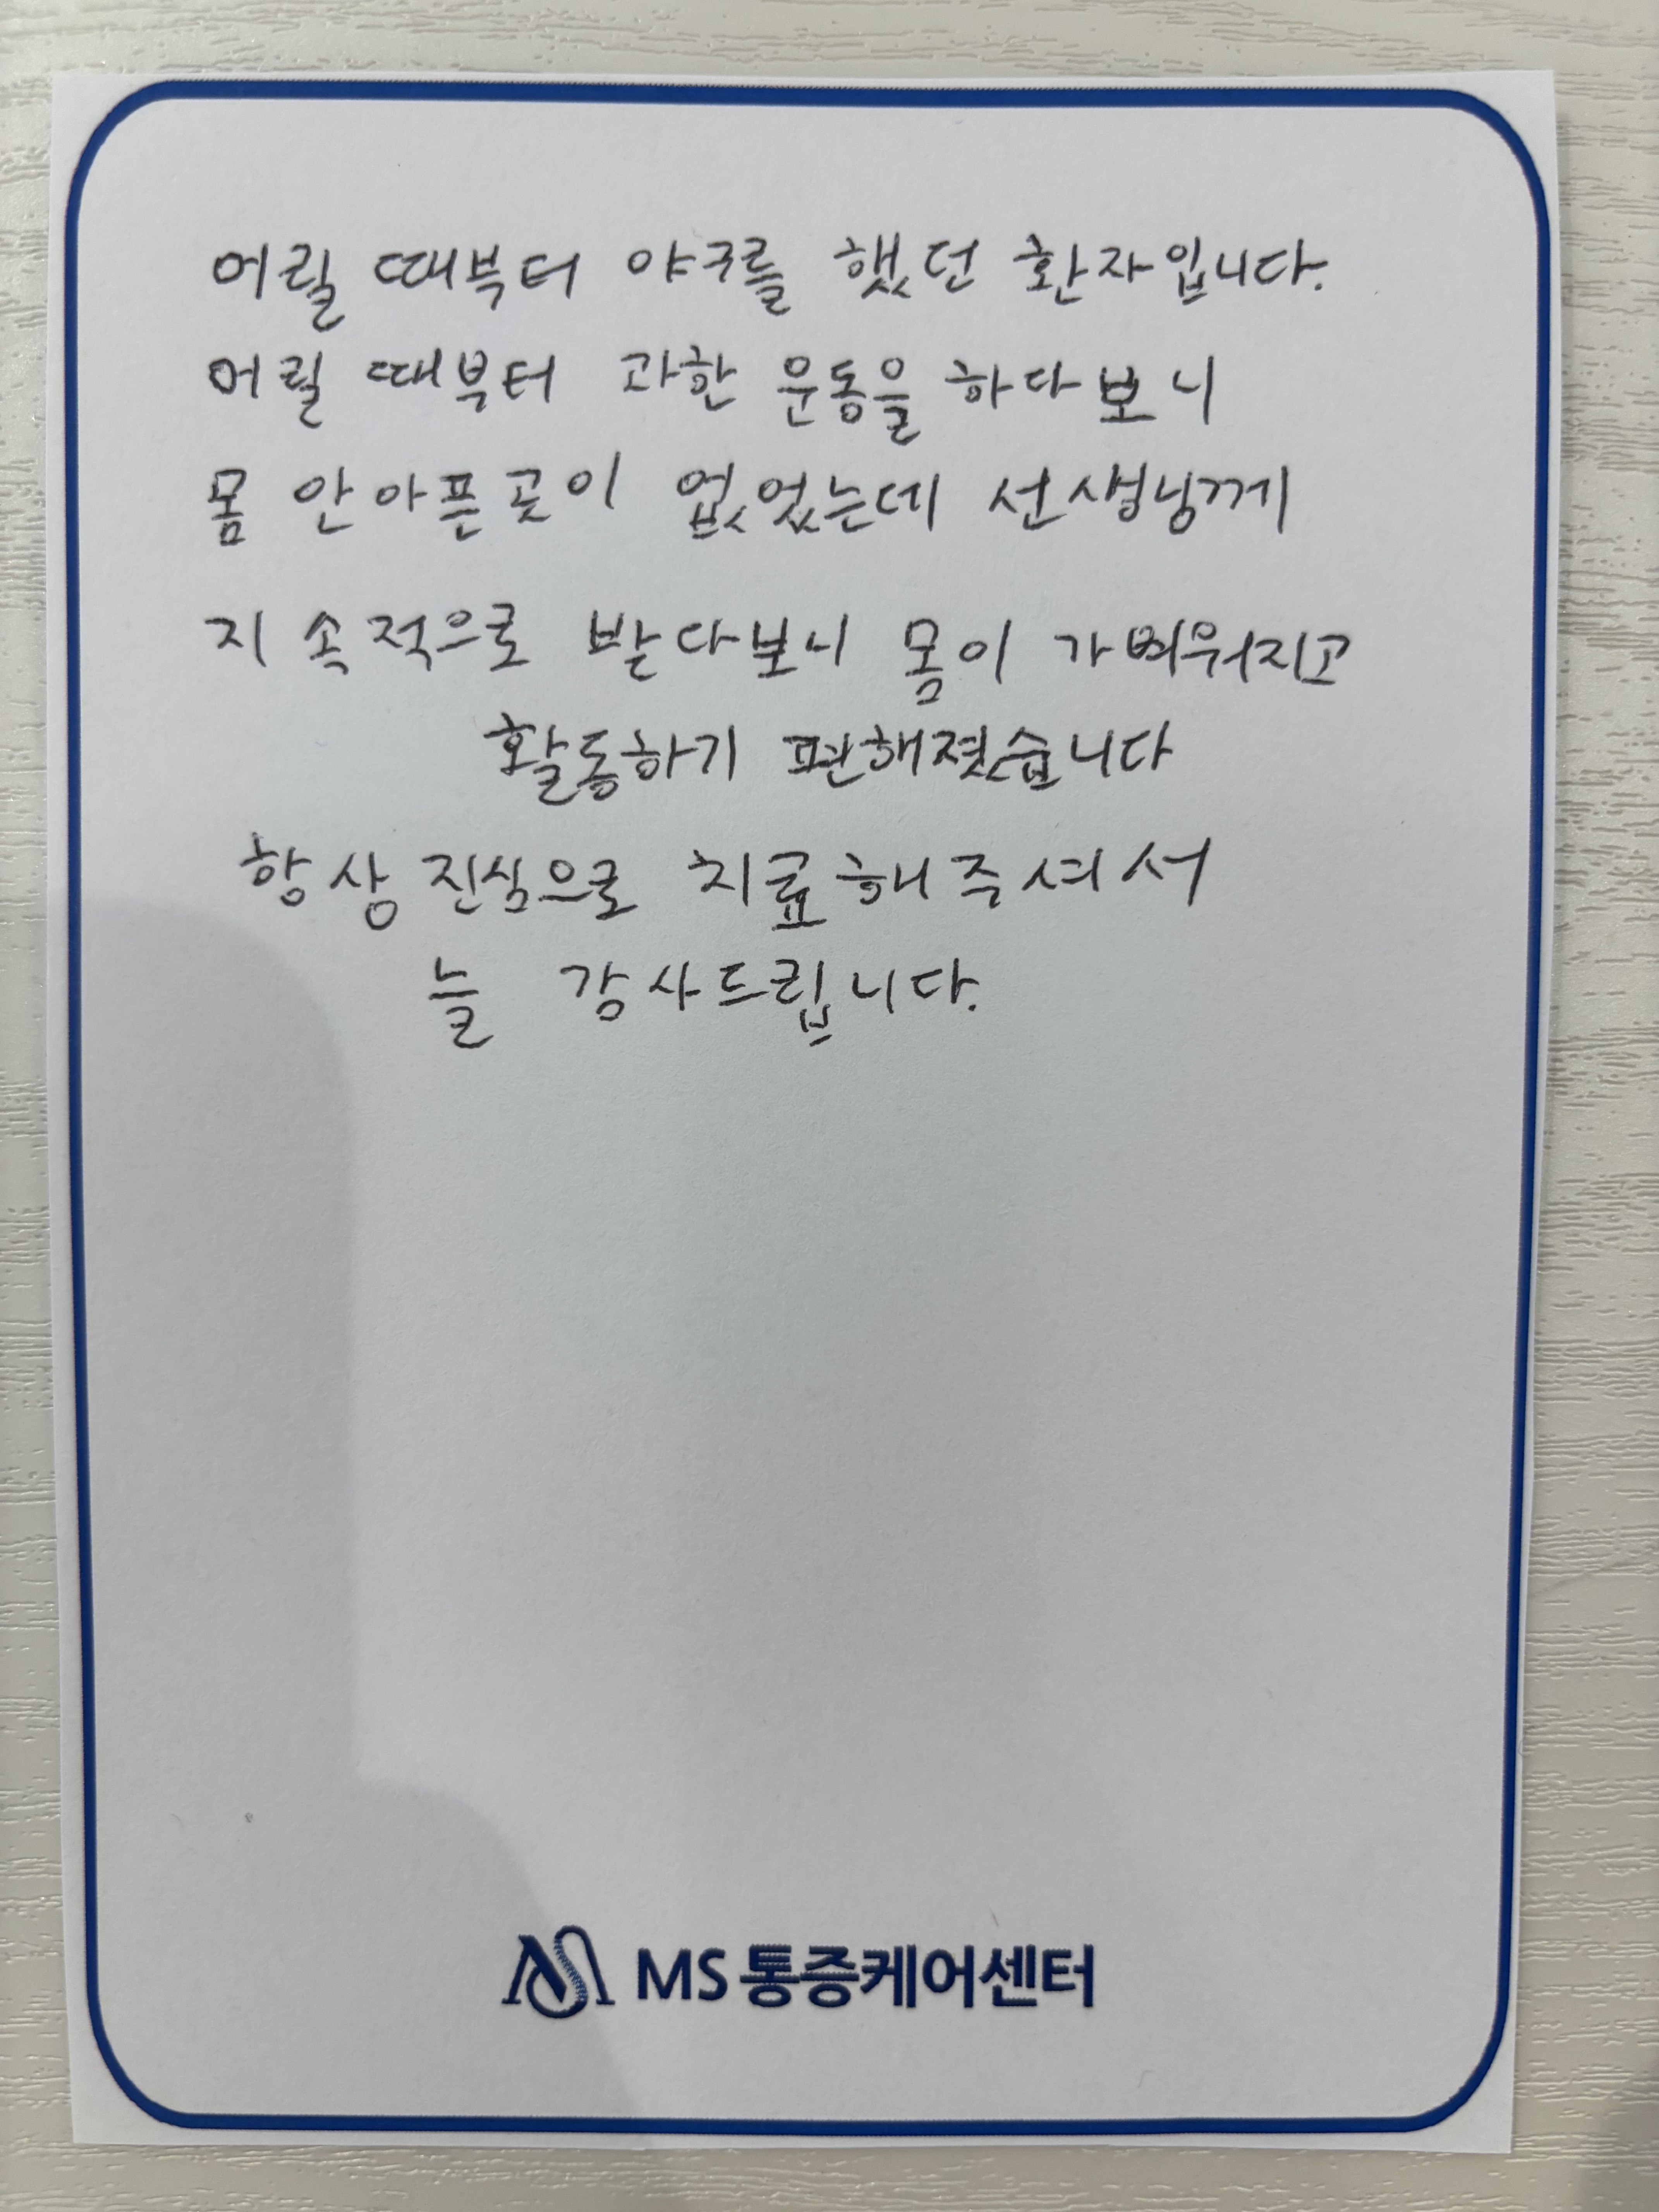 어릴 때부터 야구를 했던 환자입니다.
어릴 때부터 과한 운동을 하다보니
몸 안아픈곳이 없었는데 선생님께
지속적으로 받다보니 몸이 가벼워지고
활동하기 편해졌습니다
항상 진심으로 치료해주셔서
늘 감사드립니다.
MS 통증케어센터